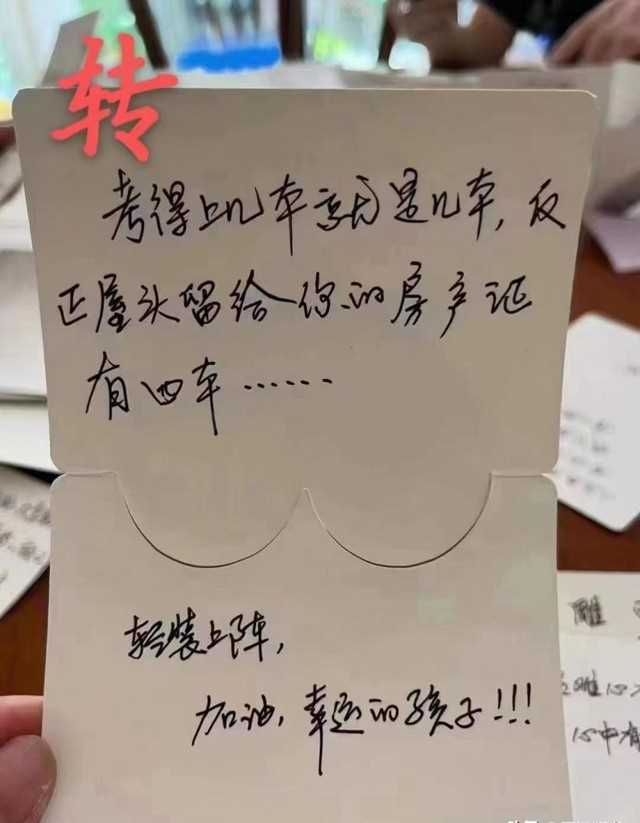 转
考得上几本就是几本,反
正屋头留给你的房产证
有四本……
轻装上阵,
加油,幸运的孩子!!!
雕
心中有